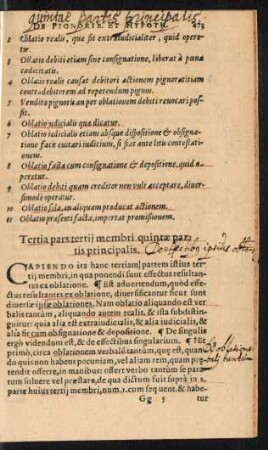 quintæ partis principalis.
DE PIGNORIB. ET HYPOTH. 473
2 Oblatio realis, quæ sit extraiudicialiter, quid operetur.
3 Oblatio debiti etiam sine consignatione, liberat à pœna caducitatis.
4 Oblatio realis causat debitori actionem pignoratitiam contra creditorem ad repetendum pignus.
7 Venditio pignoris an per oblationem debiti reuocari possit.
6 Oblatio iudicialis quæ dicatur.
7 Oblatio iudicialis etiam absque dispositione & obsignatione facit euitari iudicium, si fiat ante litis contestationem.
8 Oblatio facta cum consignatione & depositione, quid operetur.
9 Oblatio debiti quam creditor non vult acceptare, diuersimodè operatur.
10 Oblatio sola, an aliquam producat actionem.
11 Oblatio præsenti facta, importat promissionem.
Tertia pars tertij membri quintæ partis principalis.
CAPIENDO ita hanc tertiam partem istius tertij membri, in qua ponendi sunt effectus resultantes ex oblatione. ¶ Est aduertendum, quòd effectus resultantes ex oblatione, diuersificantur sicut sunt diuersæ ipsæ oblationes. Nam oblatio aliquando est verbalis tantùm, aliquando autem realis, & ista subdistinguitur: quia alia est extraiudicialis, & alia iudicialis, & alia sit cum obsignatione & depositione. ¶ De singulis ergò videndum est, & de effectibus singularium. ¶ Et primò, circa oblationem verbalè tantùm, quæ est, quando quis non habens pecuniam, vel aliam rem, quam prætendit offerre, in manibus offert verbo tantùm se paratum soluere vel præstare, de qua dixi suprà in 2. parte huius tertij membri, num. 1. cum sequent. & habe-
Gg 5 tur